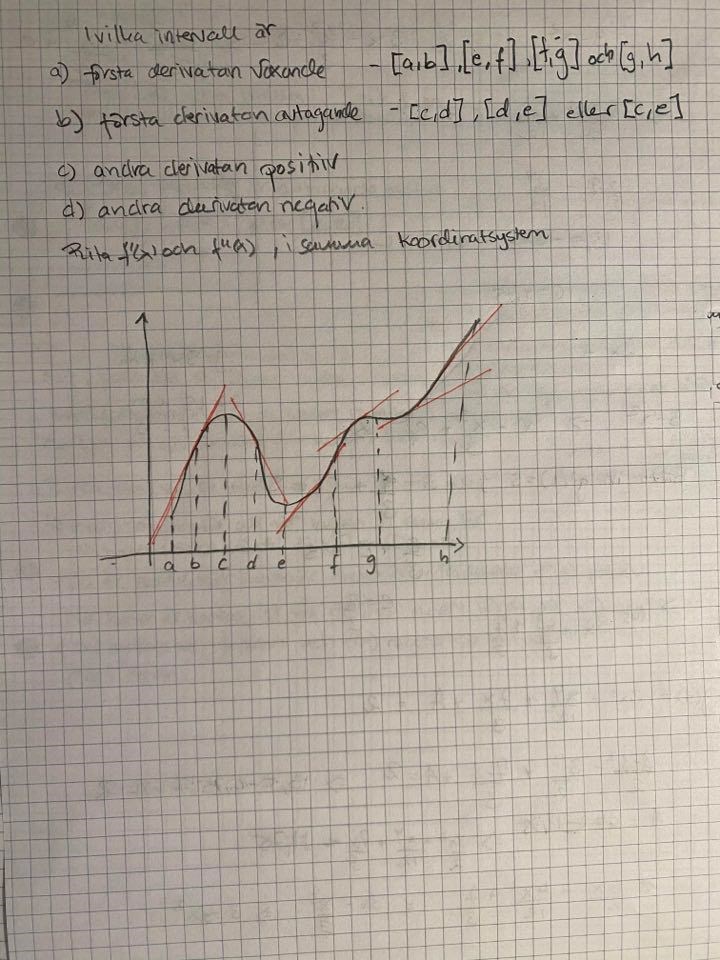 I vilka intervall är
a) första derivatan växande - [a,b], [e,f], [f,g] och [g,h]
b) första derivatan avtagande - [c,d], [d,e] eller [c,e]
c) andra derivatan positiv
d) andra derivatan negativ.
Rita f'(x) och f"(x), i samma koordinatsystem
a b c d e f g h